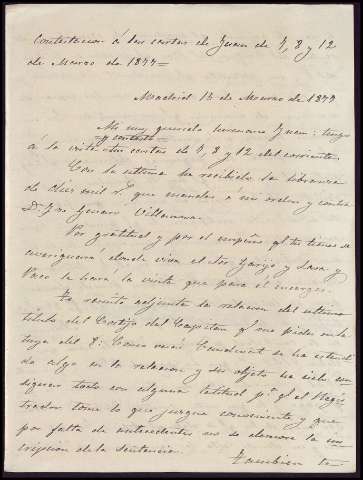 Contestacion á las cartas de Juan de 7, 8 y 12
de Marzo de 1877=
Madrid 13 de Marzo de 1877
Mi muy querido hermano Juan: tengo
y contesto
á la vista tus cartas de 7, 8 y 12 del corriente.
Con la ultima he recibido la libranza
de diez mil r.s que mandas a mi orden y contra
D. Genaro Villanueva.
Por gratitud y por el empeño q.e tu tienes de
averiguar donde vive el Sor Garijo y Lara y
Paco le hará la visita que para él encargas.
Te remito adjunta la relacion del ultimo
titulo del Cortijo del Capitan q.e me pides en la
tuya del 8: Como verás Cendrient se ha estendi
do algo en la relacion, y su objeto ha sido con
signar todo con alguna latitud p.a q.e el Regis
trador tome lo que juzgue conveniente y que
por falta de antecedentes no se demore la ins
cripcion de la sentencia.
Tambien te